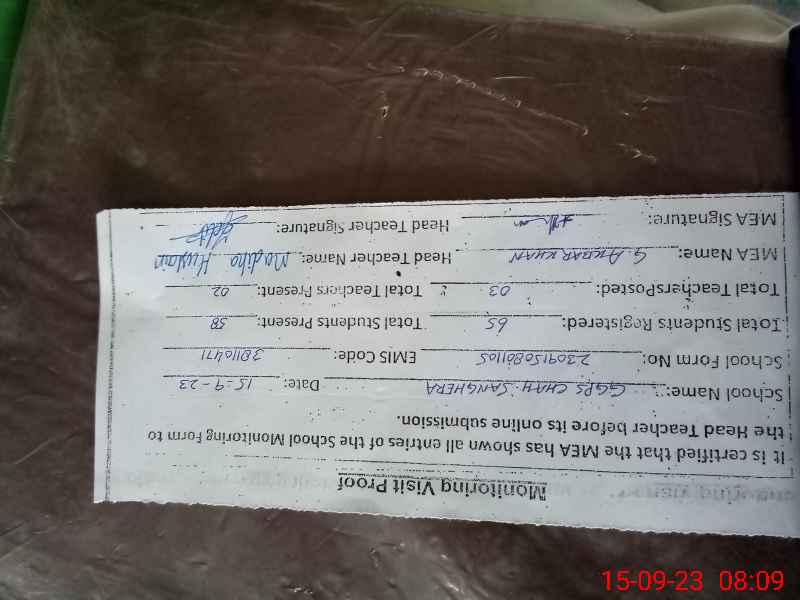 Monitoring Visit Proof
It is certified that the MEA has shown all entries of the School Monitoring Form to
the Head Teacher before its online submission.
School Name: GGPS CHAH SANGHERA Date: 15-9-23
School Form No: 2309150801105 EMIS Code: 38110471
Total Students Registered: 65 Total Students Present: 58
Total TeachersPosted: 03 Total Teachers Present: 02
MEA Name: G. AKBAR KHAN Head Teacher Name: Madiha Hussain
MEA Signature: Head Teacher Signature:
15-09-23 08:09